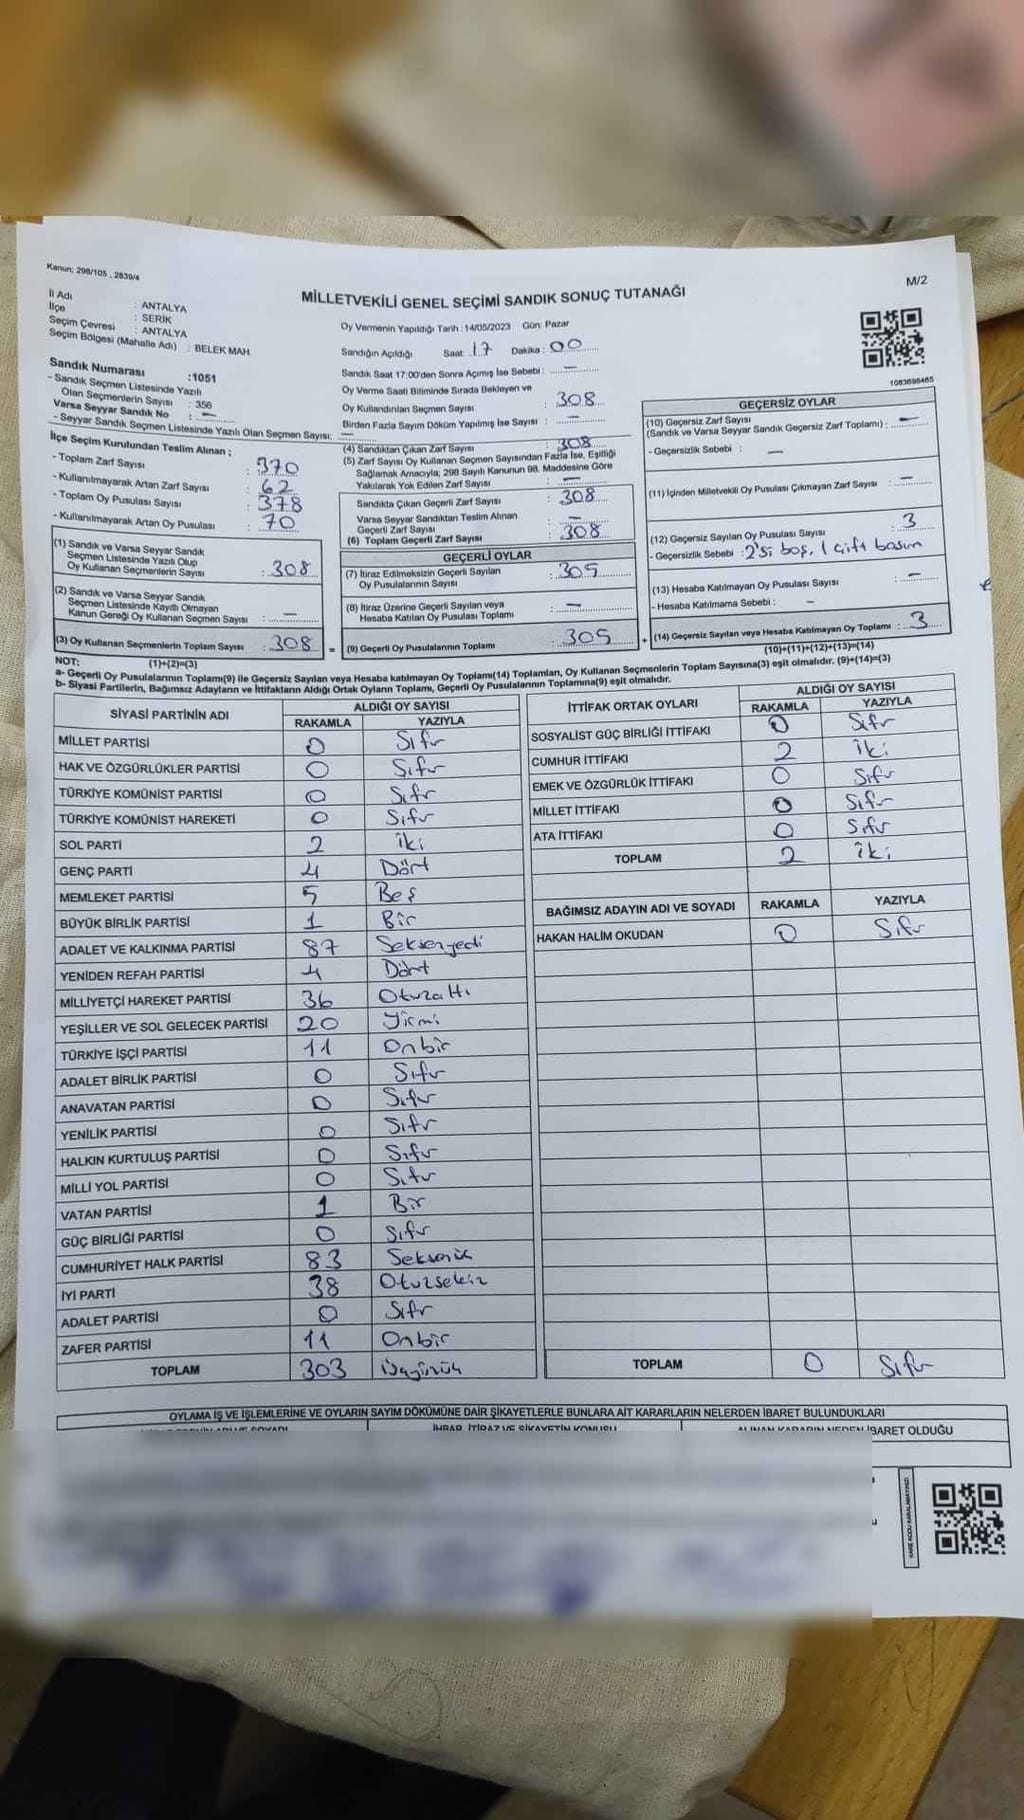 Kanun: 298/105 , 2839/4
M/2
MİLLETVEKİLİ GENEL SEÇİMİ SANDIK SONUÇ TUTANAĞI
İl Adı : ANTALYA
İlçe : SERİK
Seçim Çevresi : ANTALYA
Seçim Bölgesi (Mahalle Adı) : BELEK MAH.
Oy Vermenin Yapıldığı Tarih :14/05/2023 Gün: Pazar
Sandığın Açıldığı Saat: 17 Dakika: 00
Sandık Saat 17:00'den Sonra Açımış İse Sebebi : —
Oy Verme Saati Bitiminde Sırada Bekleyen ve
Oy Kullandırılan Seçmen Sayısı : 308
Birden Fazla Sayım Döküm Yapılmış İse Sayısı : —
1083698465
Sandık Numarası :1051
- Sandık Seçmen Listesinde Yazılı
Olan Seçmenlerin Sayısı : 356
Varsa Seyyar Sandık No : —
- Seyyar Sandık Seçmen Listesinde Yazılı Olan Seçmen Sayısı: —
İlçe Seçim Kurulundan Teslim Alınan ;
- Toplam Zarf Sayısı : 370
- Kullanılmayarak Artan Zarf Sayısı : 62
- Toplam Oy Pusulası Sayısı : 378
- Kullanılmayarak Artan Oy Pusulası : 70
(1) Sandık ve Varsa Seyyar Sandık
Seçmen Listesinde Yazılı Olup
Oy Kullanan Seçmenlerin Sayısı : 308
(2) Sandık ve Varsa Seyyar Sandık
Seçmen Listesinde Kayıtlı Olmayan
Kanun Gereği Oy Kullanan Seçmen Sayısı : —
(3) Oy Kullanan Seçmenlerin Toplam Sayısı : 308 =
(1)+(2)=(3)
(4) Sandıktan Çıkan Zarf Sayısı : 308
(5) Zarf Sayısı Oy Kullanan Seçmen Sayısından Fazla İse, Eşitliği
Sağlamak Amacıyla; 298 Sayılı Kanunun 98. Maddesine Göre
Yakılarak Yok Edilen Zarf Sayısı : —
Sandıkta Çıkan Geçerli Zarf Sayısı : 308
Varsa Seyyar Sandıktan Teslim Alınan
Geçerli Zarf Sayısı : —
(6) Toplam Geçerli Zarf Sayısı : 308
GEÇERLİ OYLAR
(7) İtiraz Edilmeksizin Geçerli Sayılan
Oy Pusulalarının Sayısı : 305
(8) İtiraz Üzerine Geçerli Sayılan veya
Hesaba Katılan Oy Pusulası Toplamı : —
(9) Geçerli Oy Pusulalarının Toplamı : 305 +
GEÇERSİZ OYLAR
(10) Geçersiz Zarf Sayısı
(Sandık ve Varsa Seyyar Sandık Geçersiz Zarf Toplamı) : —
- Geçersizlik Sebebi : —
(11) İçinden Milletvekili Oy Pusulası Çıkmayan Zarf Sayısı : —
(12) Geçersiz Sayılan Oy Pusulası Sayısı : 3
- Geçersizlik Sebebi : 2'si boş, 1 çift basım
(13) Hesaba Katılmayan Oy Pusulası Sayısı : —
- Hesaba Katılmama Sebebi : —
(14) Geçersiz Sayılan veya Hesaba Katılmayan Oy Toplamı : 3
(10)+(11)+(12)+(13)=(14)
NOT:
a- Geçerli Oy Pusulalarının Toplamı(9) ile Geçersiz Sayılan veya Hesaba katılmayan Oy Toplamı(14) Toplamları, Oy Kullanan Seçmenlerin Toplam Sayısına(3) eşit olmalıdır. (9)+(14)=(3)
b- Siyasi Partilerin, Bağımsız Adayların ve İttifakların Aldığı Ortak Oyların Toplamı, Geçerli Oy Pusulalarının Toplamına(9) eşit olmalıdır.
SİYASİ PARTİNİN ADI ALDIĞI OY SAYISI
RAKAMLA YAZIYLA
MİLLET PARTİSİ 0 Sıfır
HAK VE ÖZGÜRLÜKLER PARTİSİ 0 Sıfır
TÜRKİYE KOMÜNİST PARTİSİ 0 Sıfır
TÜRKİYE KOMÜNİST HAREKETİ 0 Sıfır
SOL PARTİ 2 iki
GENÇ PARTİ 4 Dört
MEMLEKET PARTİSİ 5 Beş
BÜYÜK BİRLİK PARTİSİ 1 Bir
ADALET VE KALKINMA PARTİSİ 87 Seksenyedi
YENİDEN REFAH PARTİSİ 4 Dört
MİLLİYETÇİ HAREKET PARTİSİ 36 Otuzaltı
YEŞİLLER VE SOL GELECEK PARTİSİ 20 Yirmi
TÜRKİYE İŞÇİ PARTİSİ 11 Onbir
ADALET BİRLİK PARTİSİ 0 Sıfır
ANAVATAN PARTİSİ 0 Sıfır
YENİLİK PARTİSİ 0 Sıfır
HALKIN KURTULUŞ PARTİSİ 0 Sıfır
MİLLİ YOL PARTİSİ 0 Sıfır
VATAN PARTİSİ 1 Bir
GÜÇ BİRLİĞİ PARTİSİ 0 Sıfır
CUMHURİYET HALK PARTİSİ 83 Seksenüç
İYİ PARTİ 38 Otuzsekiz
ADALET PARTİSİ 0 Sıfır
ZAFER PARTİSİ 11 Onbir
TOPLAM 303 Üçyüzüç
İTTİFAK ORTAK OYLARI ALDIĞI OY SAYISI
RAKAMLA YAZIYLA
SOSYALİST GÜÇ BİRLİĞİ İTTİFAKI 0 Sıfır
CUMHUR İTTİFAKI 2 iki
EMEK VE ÖZGÜRLÜK İTTİFAKI 0 Sıfır
MİLLET İTTİFAKI 0 Sıfır
ATA İTTİFAKI 0 Sıfır
TOPLAM 2 iki
BAĞIMSIZ ADAYIN ADI VE SOYADI RAKAMLA YAZIYLA
HAKAN HALİM OKUDAN 0 Sıfır
TOPLAM 0 Sıfır
OYLAMA İŞ VE İŞLEMLERİNE VE OYLARIN SAYIM DÖKÜMÜNE DAİR ŞİKAYETLERLE BUNLARA AİT KARARLARIN NELERDEN İBARET BULUNDUKLARI
İHBAR, İTİRAZ VE ŞİKAYETİN KONUSU ALINAN KARARIN NEDEN İBARET OLDUĞU